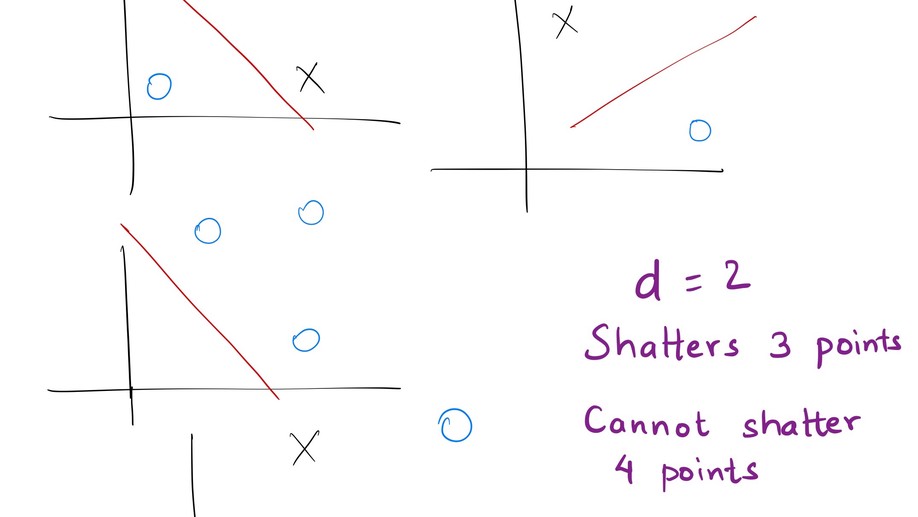 X
X
X
d = 2
Shatters 3 points
Cannot shatter
4 points